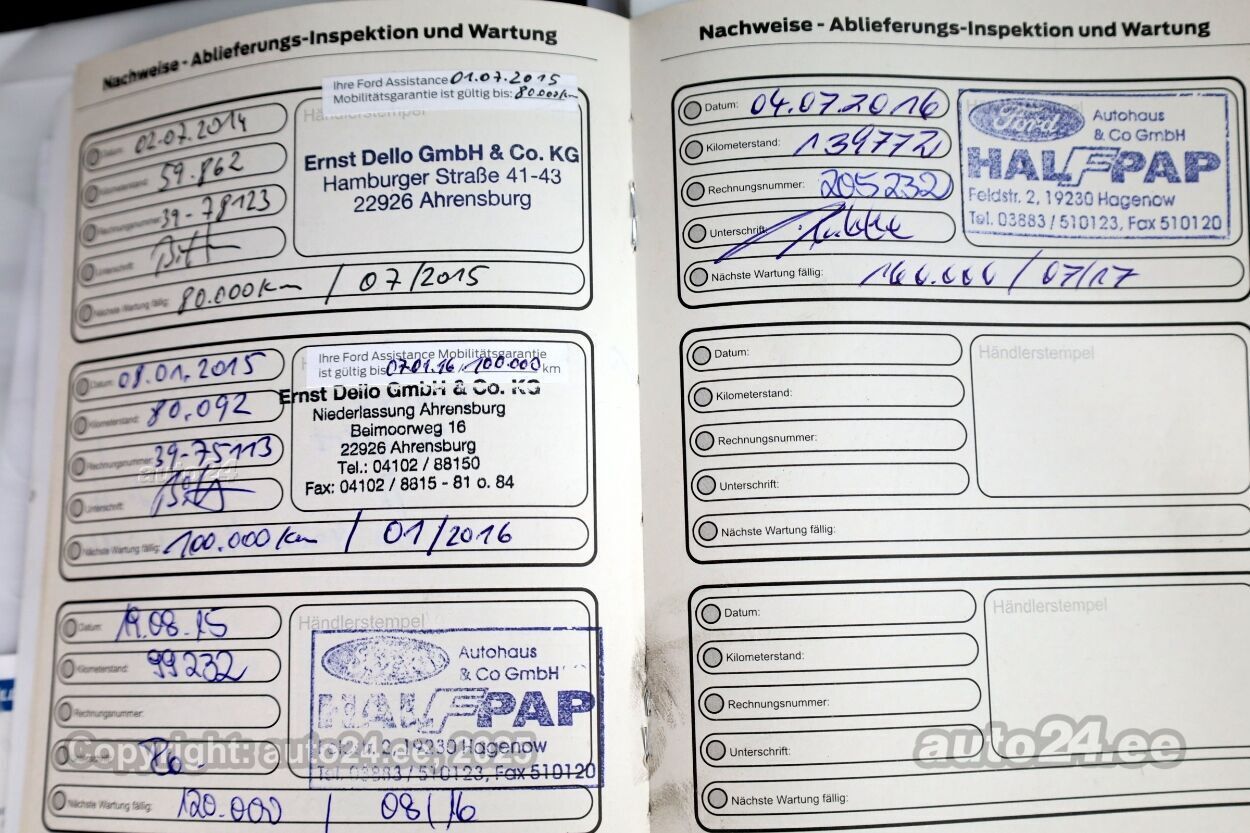 Nachweise - Ablieferungs-Inspektion und Wartung
Ihre Ford Assistance 01.07.2015
Mobilitätsgarantie ist gültig bis: 80.000km
Händlerstempel
Datum: 02.07.2014
Kilometerstand: 59.862
Rechnungsnummer: 39-78123
Unterschrift:
Ernst Dello GmbH & Co. KG
Hamburger Straße 41-43
22926 Ahrensburg
Nächste Wartung fällig: 80.000km / 07/2015
Ihre Ford Assistance Mobilitätsgarantie
ist gültig bis 07.01.16 / 100.000 km
Datum: 08.01.2015
Kilometerstand: 80.092
Rechnungsnummer: 39-75113
Unterschrift:
Ernst Dello GmbH & Co. KG
Niederlassung Ahrensburg
Beimoorweg 16
22926 Ahrensburg
Tel.: 04102 / 88150
Fax: 04102 / 8815 - 81 o. 84
Nächste Wartung fällig: 100.000km / 01/2016
Datum: 19.08.15
Kilometerstand: 99232
Rechnungsnummer:
Händlerstempel
Ford
Autohaus
& Co GmbH
HALFPAP
Feldstr. 2, 19230 Hagenow
Tel. 03883 / 510123, Fax 510120
Nächste Wartung fällig: 120.000 / 08/16
Copyright: auto24.ee, 2025
Nachweise - Ablieferungs-Inspektion und Wartung
Datum: 04.07.2016
Kilometerstand: 139772
Rechnungsnummer: 205232
Unterschrift:
Ford
Autohaus
& Co GmbH
HALFPAP
Feldstr. 2, 19230 Hagenow
Tel. 03883 / 510123, Fax 510120
Nächste Wartung fällig: 160.000 / 07/17
Datum:
Kilometerstand:
Rechnungsnummer:
Unterschrift:
Händlerstempel
Nächste Wartung fällig:
Datum:
Kilometerstand:
Rechnungsnummer:
Unterschrift:
Händlerstempel
Nächste Wartung fällig:
auto24.ee